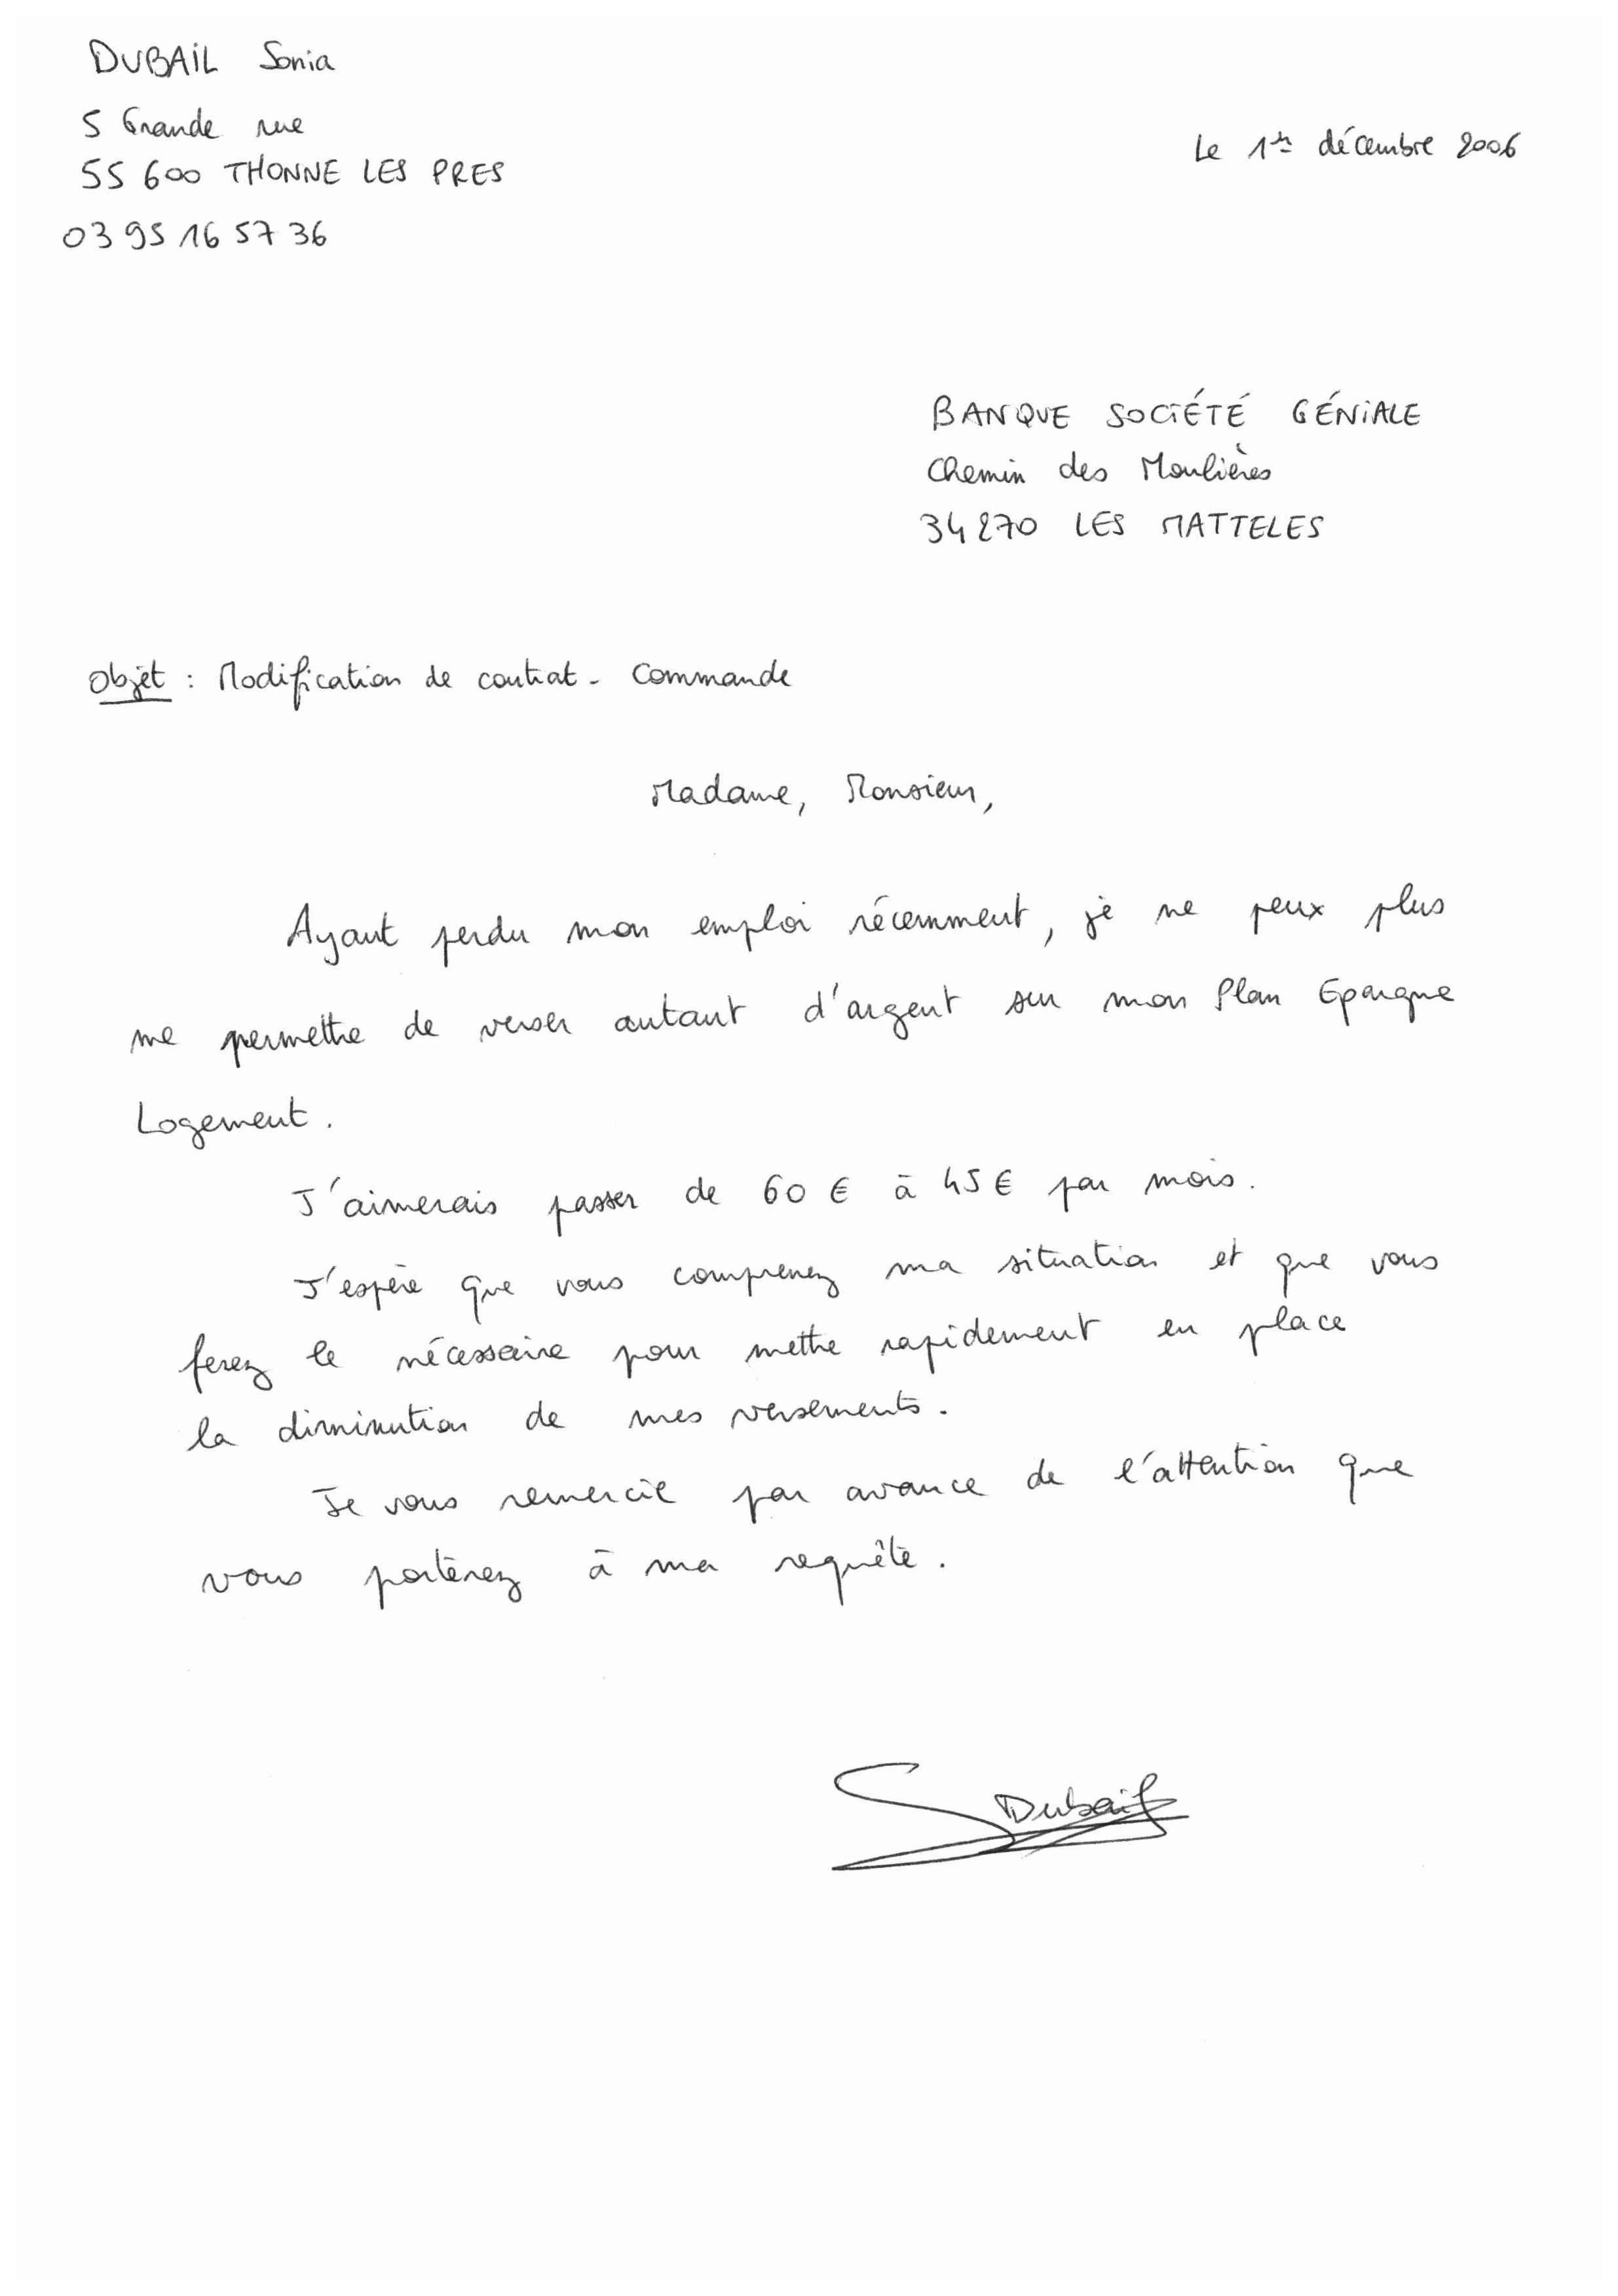 DUBAIL Sonia
5 Grande rue
55 600 THONNE LES PRES
03 95 16 57 36
Le 1er décembre 2006
BANQUE SOCIÉTÉ GÉNIALE
Chemin des Moulières
34270 LES MATTELES
Objet : Modification de contrat - Commande
Madame, Monsieur,
Ayant perdu mon emploi récemment, je ne peux plus
me permettre de verser autant d'argent sur mon Plan Epargne
Logement.
J'aimerais passer de 60 € à 45 € par mois.
J'espère que vous comprenez ma situation et que vous
ferez le nécessaire pour mettre rapidement en place
la diminution de mes versements.
Je vous remercie par avance de l'attention que
vous porterez à ma requête.
S Dubail